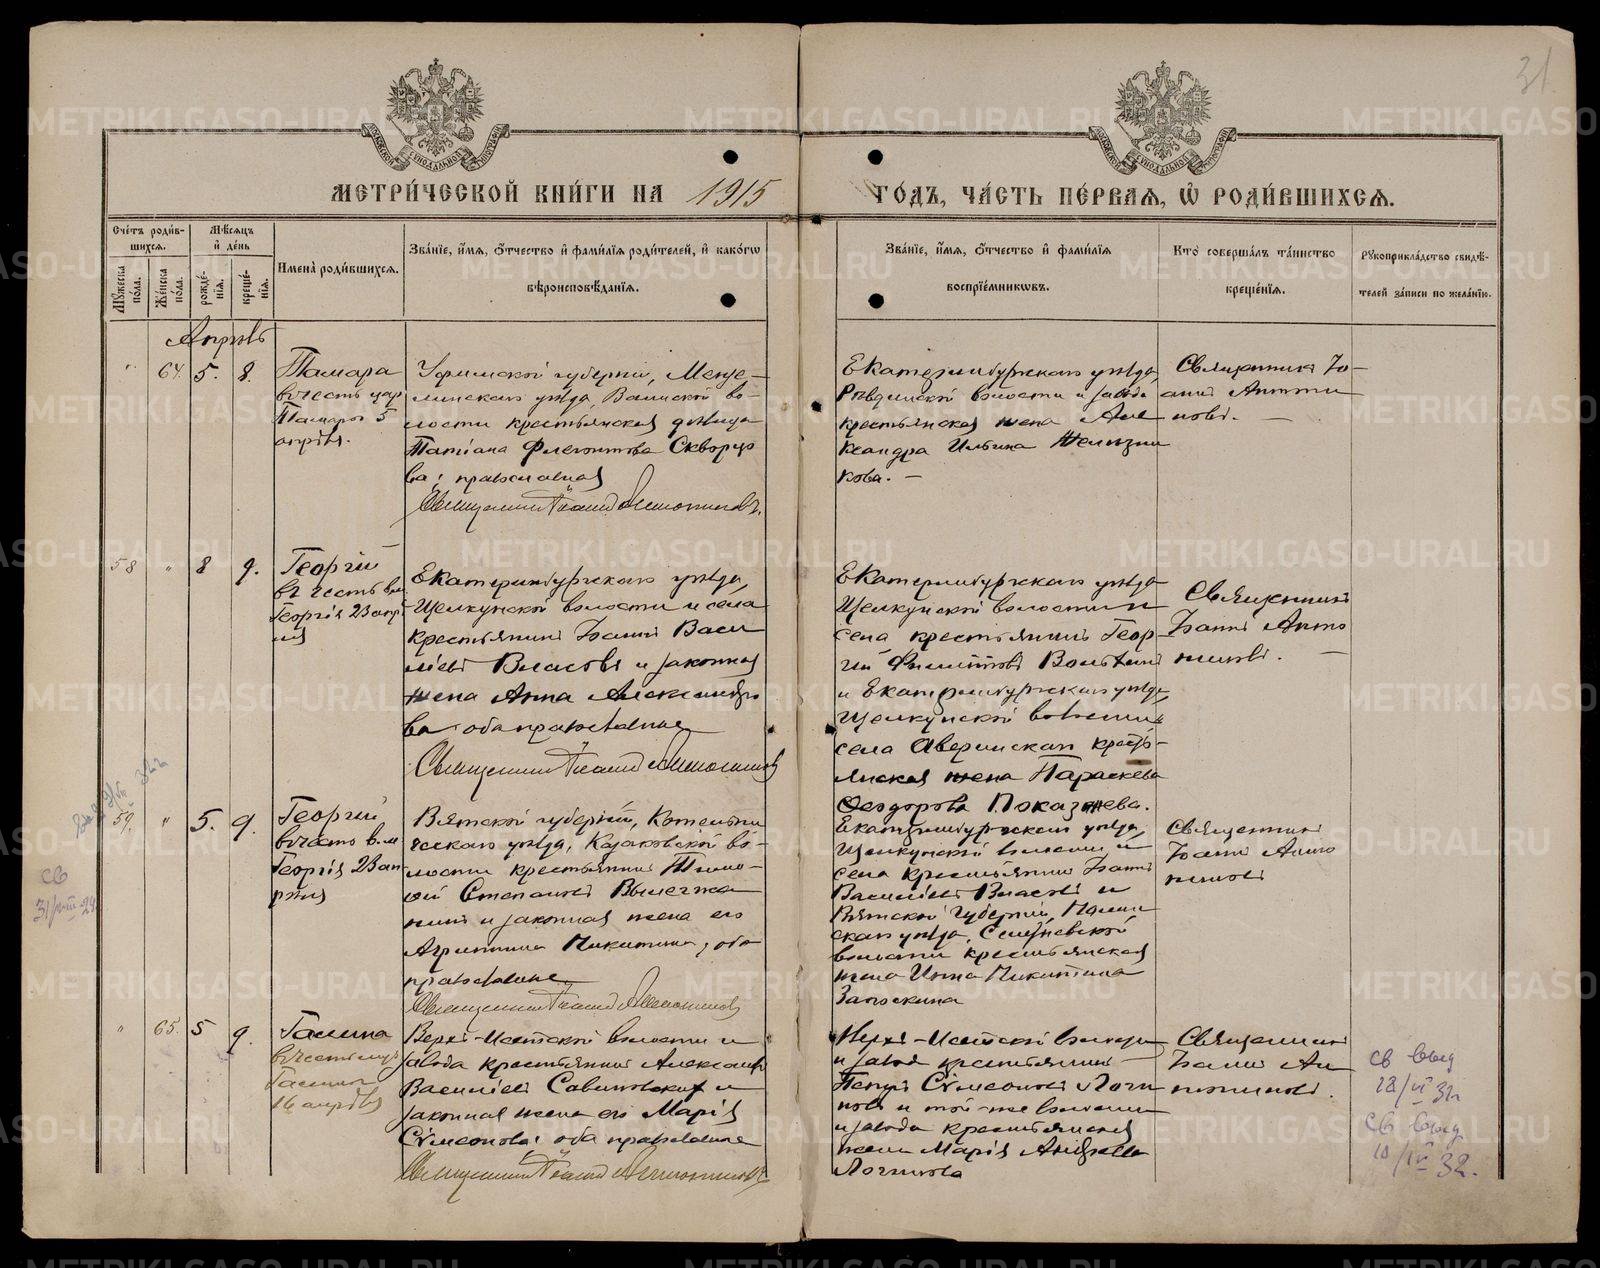 31
МОСКОВСКОЙ СѴНОДАЛЬНОЙ ТИПОГРАФІИ
МЕТРИ́ЧЕСКОЙ КНИ́ГИ НА 1915 ГО́ДЪ, ЧА́СТЬ ПЕ́РВАЯ, Ѽ РОДИ́ВШИХСЯ.
Сче́тъ роди́в-
шихся.
Му́жеска по́ла.
Же́нска по́ла.
Мѣ́сяцъ
и́ де́нь
рожде́-
нїя.
креще́-
нїя.
И҆мена̀ роди́вшихся.
Зва́нїе, и҆́мя, ѻ҆́тчество и҆ фами́лїя роди́телей, и҆ како́гѡ
вѣроисповѣ́данїя.
Зва́нїе, и҆́мя, ѻ҆́тчество и҆ фами́лїя
воспрїе́мникѡвъ.
Кто̀ соверша́лъ та́инство
креще́нїя.
Рꙋкоприкла́дство свидѣ́-
телей за́писи по жела́нїю.
Апрѣль
" 64. 5. 8.
Тамара
въ честь цар
Тамары 5
апрѣля.
Уфимской губерніи, Мензе-
линскаго уѣзда,
волости крестьянская дѣвица
Татіана Скворцо
ва, православная
Священникъ Іоаннъ
Екатеринбургскаго уѣзда,
Ревдинской волости и завода
крестьянская жена Але
ксандра Ильина Желѣзни
кова. —
Священникъ Іо-
аннъ
58 " 8 9.
Георгій
въ честь вм
Георгія 23 апр
ля
Екатеринбургскаго уѣзда,
Щелкунской волости и села
крестьянинъ Іоаннъ Васи
ліевъ Власовъ и законная
жена Анна Александро
ва, оба православные
Священникъ Іоаннъ
Екатеринбургскаго уѣзда
Щелкунской волости и
села крестьянинъ Геор-
гій
и Екатеринбургскаго уѣзда,
Щелкунской волости
села Аверинскаго кресть-
янская жена Параскева
Ѳеодорова
Священникъ
Іоаннъ
59. " 5. 9.
Георгій
въ честь влм
Георгія 23 ап
рѣля
св
31/VIII 24
Вятской губерніи, Котельни
ческаго уѣзда, Казаковской во-
лости крестьянинъ Тимо-
ѳей Степановъ Вылегжа
нинъ и законная жена его
Агриппина Никитина, оба
православные
Священникъ Іоаннъ
Екатеринбургскаго уѣзда,
Щелкунской волости и
села крестьянинъ Іоаннъ
Василіевъ Власовъ и
Вятской губерніи,
скаго уѣзда,
волости крестьянская
жена Никитина
Священникъ
Іоаннъ
" 65. 5 9.
Галина
въ честь муч
Галины
16 апрѣля
Верхъ-Исетской волости и
завода крестьянинъ Александръ
Василіевъ Савиновскихъ и
законная жена его Марія
Сѵмеонова, оба православные
Священникъ Іоаннъ
Верхъ-Исетской волости
и завода крестьянинъ
Петръ Сѵмеоновъ Логи
новъ и той-же волости
и завода крестьянская
жена Марія Андреева
Логинова
Священникъ
Іоаннъ
св выд
28/VI 32
св выд
10/IV 32.
METRIKI.GASO-URAL.RU